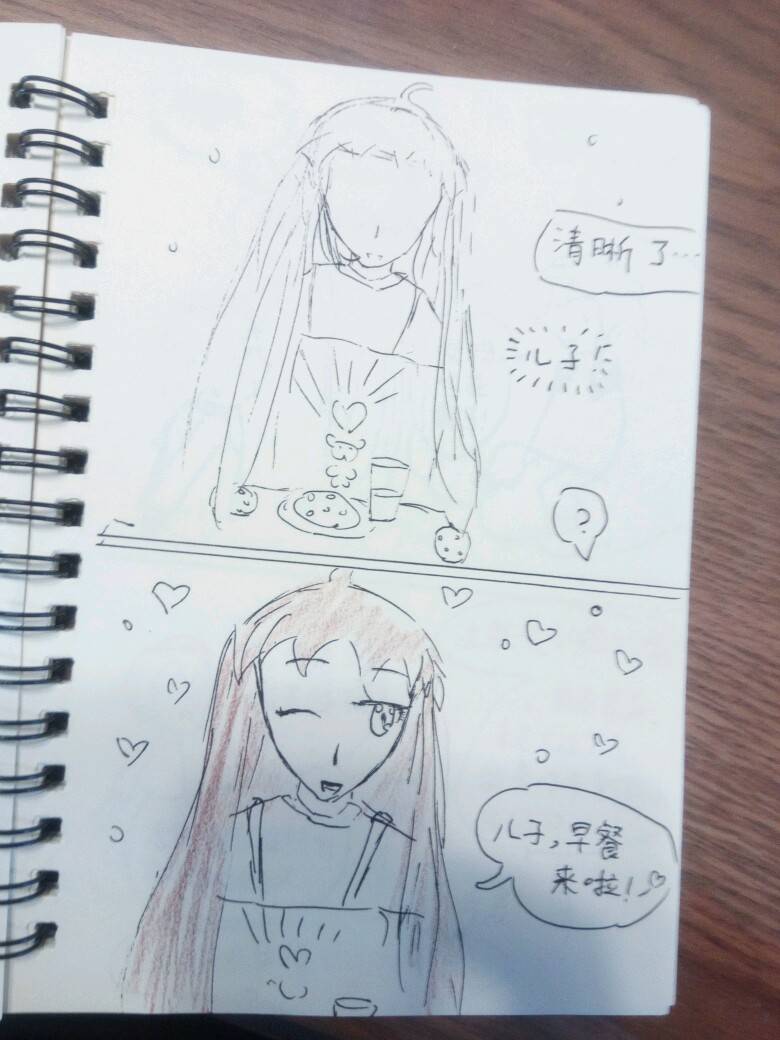 清晰了…
儿子!
?
儿子,早餐
来啦!